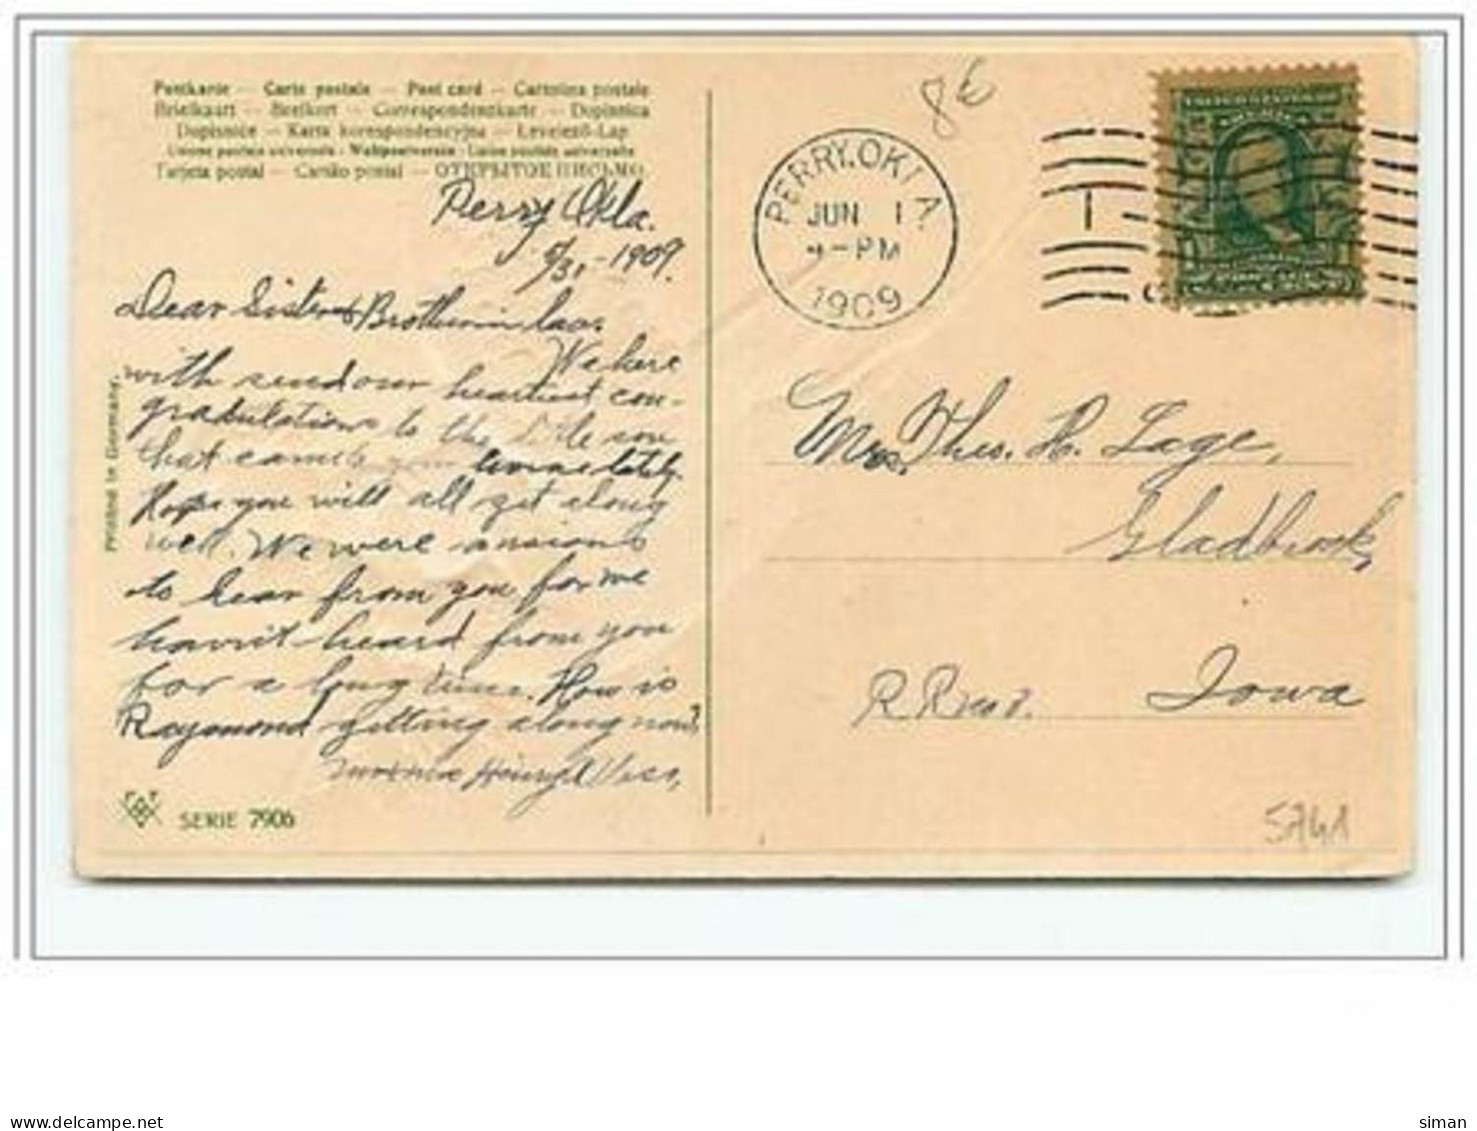 Postkarte — Carte postale — Post card — Cartolina postale
Briefkaart — Brefkort — Correspondenzkarte — Dopisnica
Dopisnice — Karta korespondencyjna — Levelező-Lap
Union postale universelle - Weltpostverein - Union postale universelle
Tarjeta postal — Cartão postal — ОТКРЫТОЕ ПИСЬМО.
Perry Okla.
5/31-1909.
Dear Sister & Brother in law.
We here
with send our heartiest con-
gratulations to the little son
that came to your home lately.
Hope you will all get along
well. We were anxious
to hear from you for we
havn't heard from you
for a long time. How is
Raymond getting along now?
Printed in Germany.
SERIE 7906
8€
PERRY, OKLA.
JUN 1
-PM
1909
1
UNITED STATES OF
AMERICA
Mrs. Theo. H. Lage,
Gladbrook,
Iowa
5741
siman